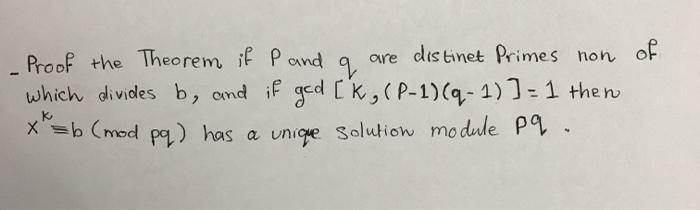 - Proof the Theorem if P and q are distinet Primes non of
which divides b, and if gcd [K,(P-1)(q-1)]=1 then
x^k≡b (mod pq) has a unique solution module pq .